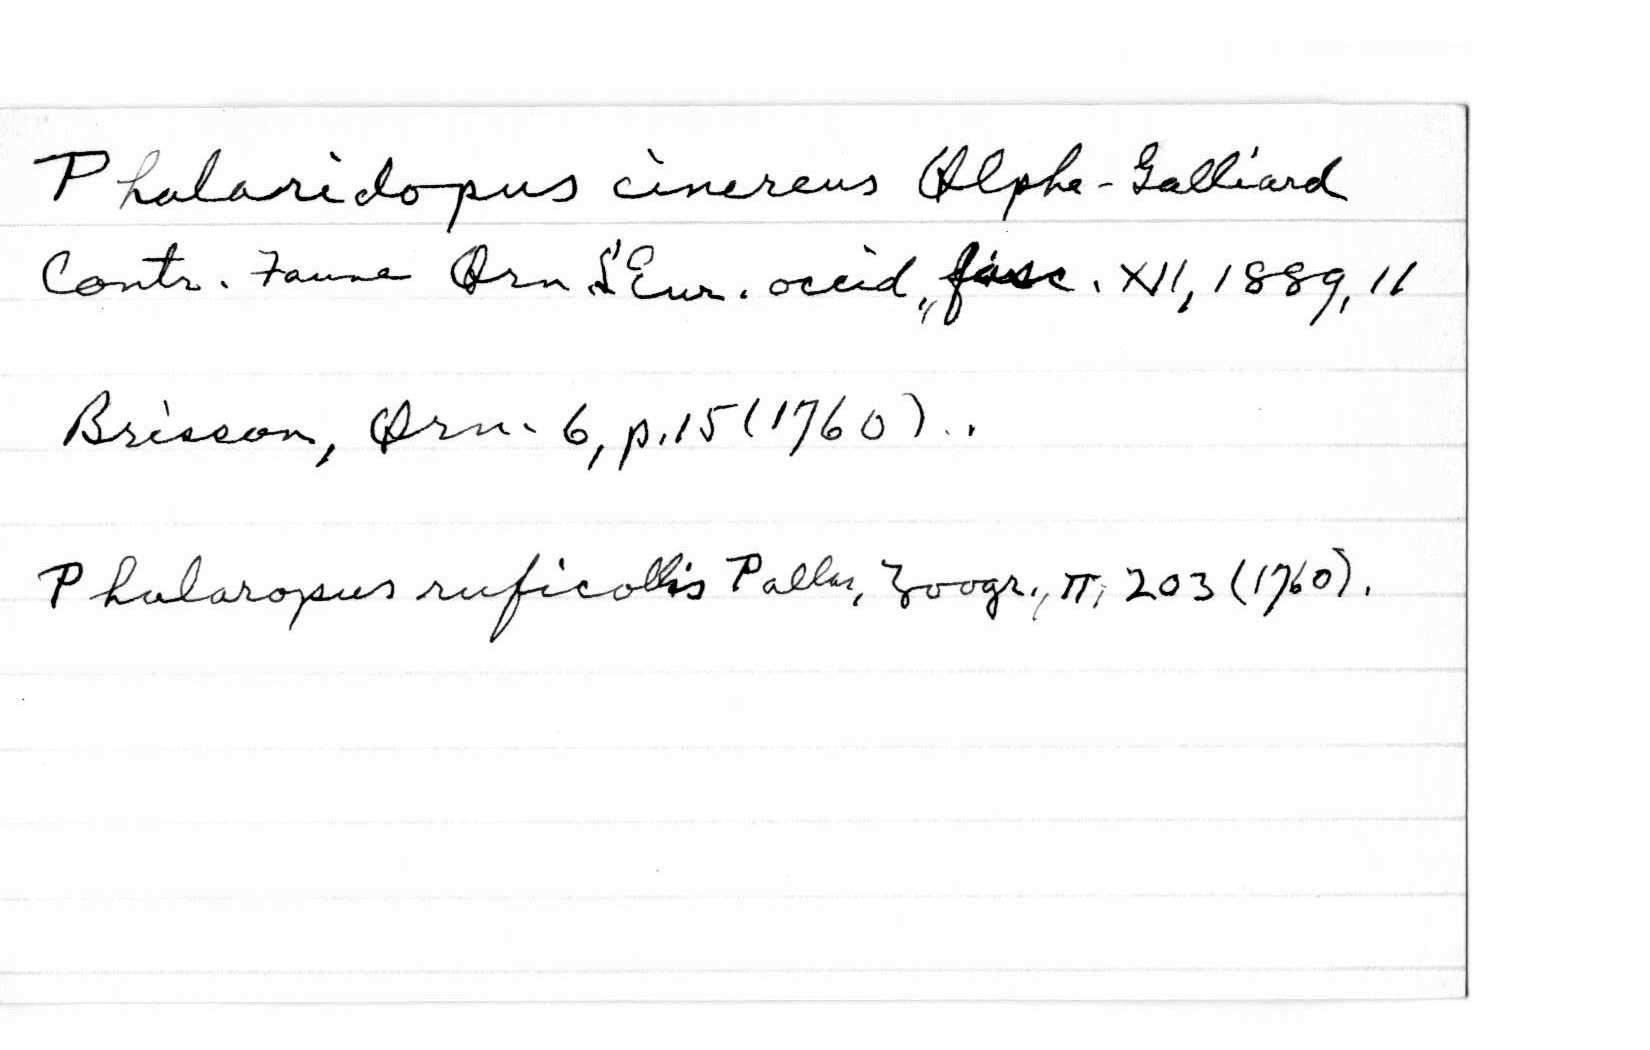 Phalaridopus cinereus Olphe-Galliard
Contr. Faune Orn. L'Eur. occid., fasc. XII, 1889, 11
Brisson, Orn. 6, p. 15 (1760)..
Phalaropus ruficollis Pallas, Zoogr., II, 203 (1760).